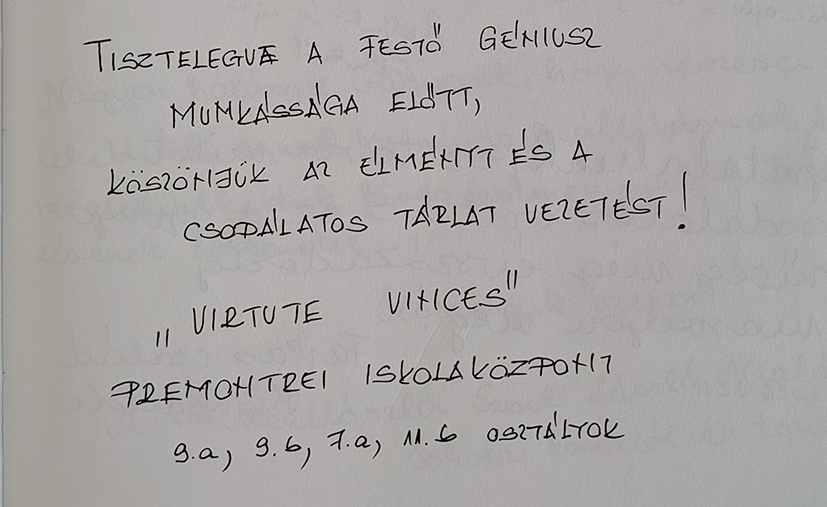 TISZTELEGVE A FESTŐ GÉNIUSZ
MUNKÁSSÁGA ELŐTT,
KÖSZÖNJÜK AZ ÉLMÉNYT ÉS A
CSODÁLATOS TÁRLAT VEZETÉST!
„VIRTUTE VINCES"
PREMONTREI ISKOLAKÖZPONT
9.a, 9.b, 7.a, 11.b OSZTÁLYOK